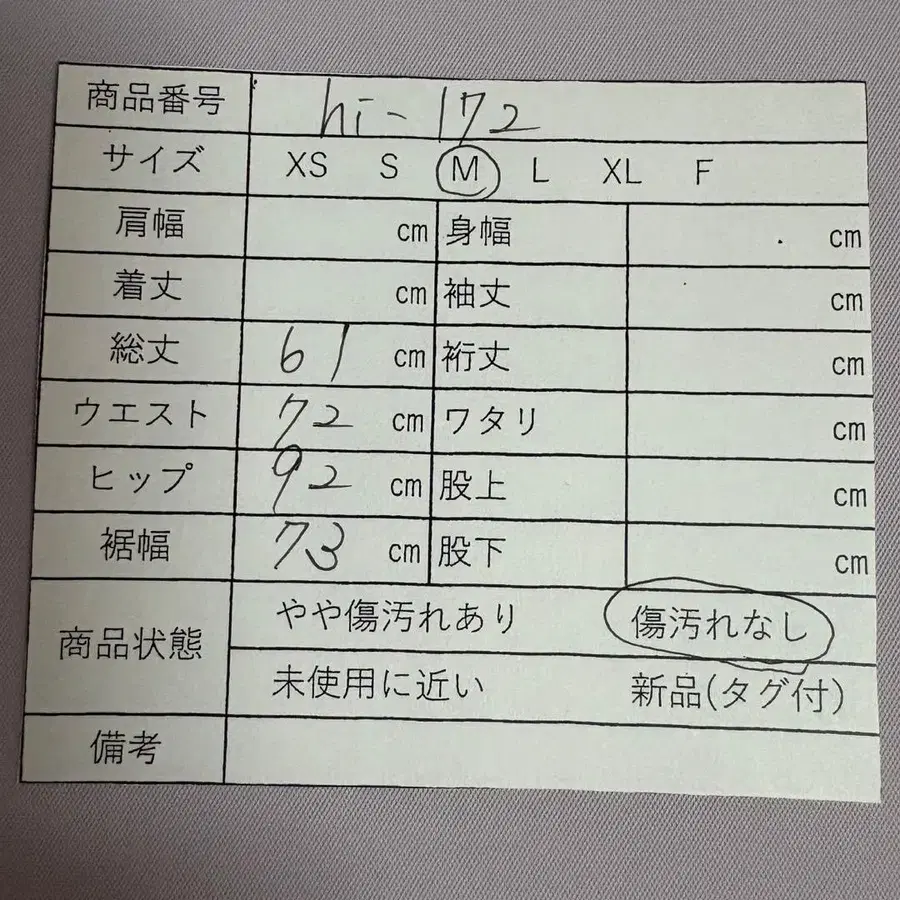 商品番号 hi-172
サイズ XS S M L XL F
肩幅 cm 身幅 cm
着丈 cm 袖丈 cm
総丈 61 cm 裄丈 cm
ウエスト 72 cm ワタリ cm
ヒップ 92 cm 股上 cm
裾幅 73 cm 股下 cm
商品状態
やや傷汚れあり 傷汚れなし
未使用に近い 新品(タグ付)
備考